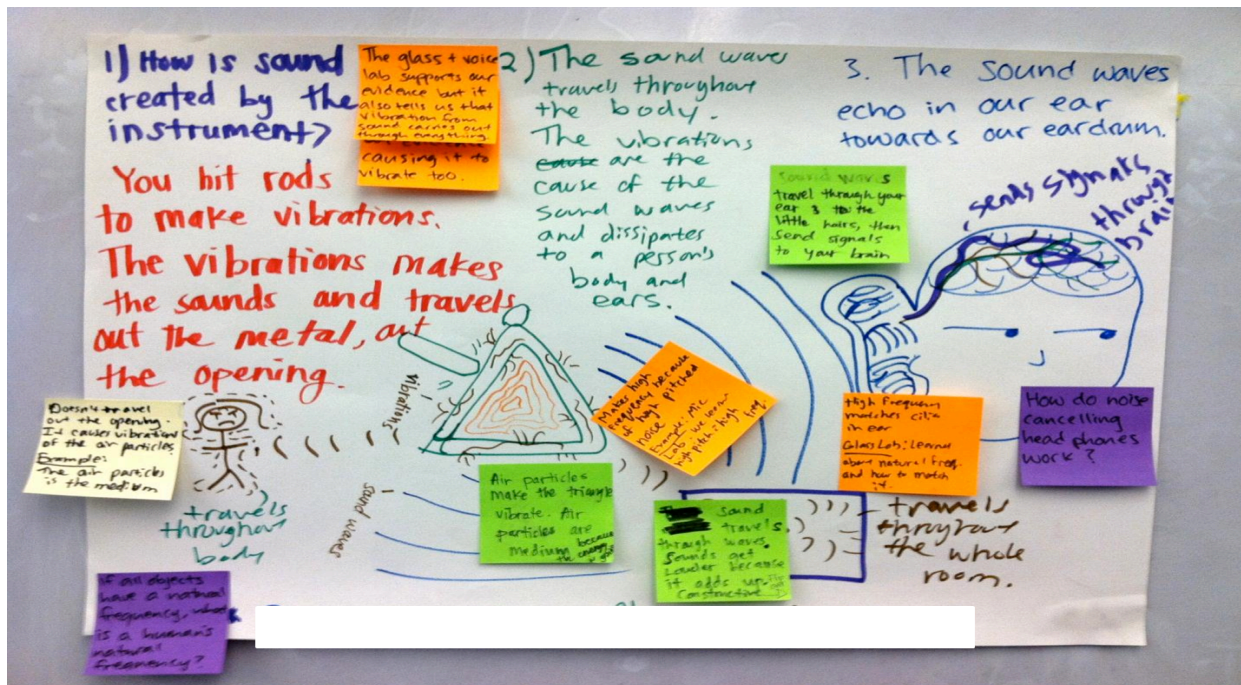 1) How is sound
created by the
instrument?
You hit rods
to make vibrations.
The vibrations makes
the sounds and travels
out the metal, out
the opening.
The glass + voice
lab supports our
evidence but it
also tells us that
vibration from
sound carries out
through everything
causing it to
vibrate too.
2) The sound waves
travels throughout
the body.
The vibrations
cause are the
cause of the
sound waves
and dissipates
to a person's
body and
ears.
3. The sound waves
echo in our ear
towards our eardrum.
Sound waves
travel through your
ear & to the
little hairs, then
send signals
to your brain
sends signals
through
brain
Doesn't travel
out the opening.
It causes vibrations
of the air particles
Example:
The air particles
is the medium
travels
throughout
body
vibrations
sound waves
Makes high
frequency because
of high pitched
noise
Example: Mic
Lab - we learn
high pitch = high freq.
Air particles
make the triangle
vibrate. Air
particles are
medium because
the energy
sound
travels
through waves.
Sounds get
Louder because
it adds up.
Constructive
High Frequency
matches cilia
in ear
Glass Lab: Learned
about natural freq.
and how to match
it.
How do noise
cancelling
headphones
work?
travels
throughout
the whole
room.
If all objects
have a natural
frequency, what
is a human's
natural
frequency?